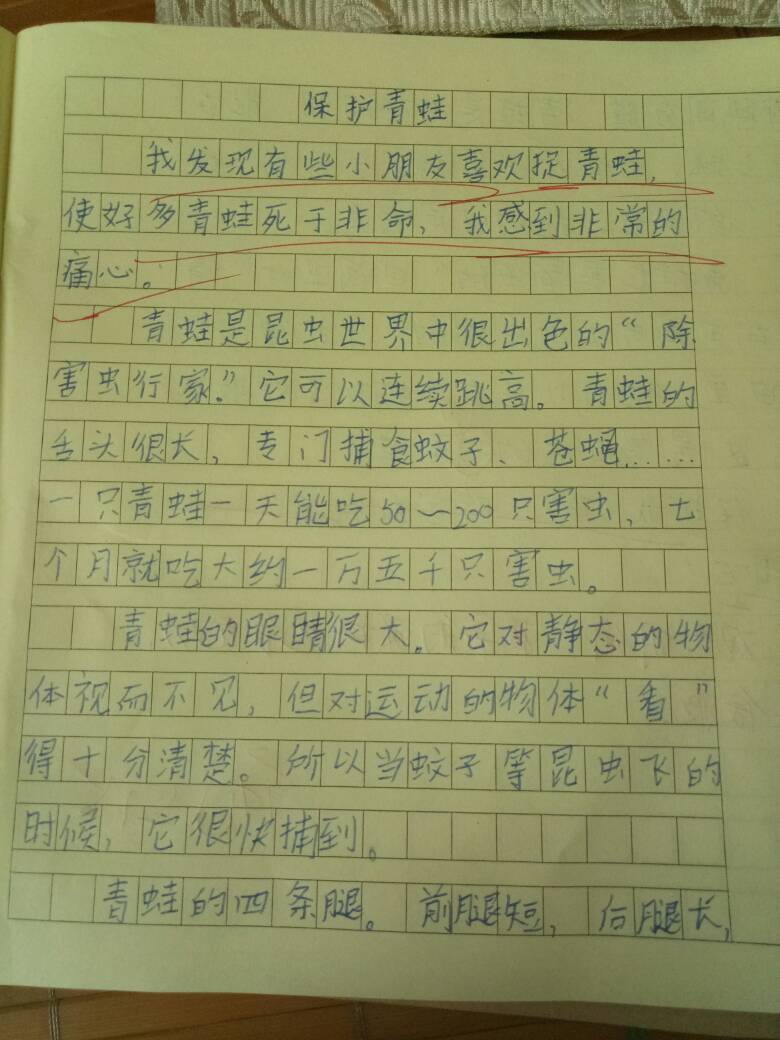 保护青蛙
我发现有些小朋友喜欢捉青蛙,
使好多青蛙死于非命,我感到非常的
痛心。
青蛙是昆虫世界中很出色的“除
害虫行家.”它可以连续跳高。青蛙的
舌头很长,专门捕食蚊子、苍蝇……
一只青蛙一天能吃50~200只害虫,七
个月就吃大约一万五千只害虫。
青蛙的眼睛很大。它对静态的物
体视而不见,但对运动的物体“看”
得十分清楚。所以当蚊子等昆虫飞的
时候,它很快捕到。
青蛙的四条腿。前腿短,后腿长,